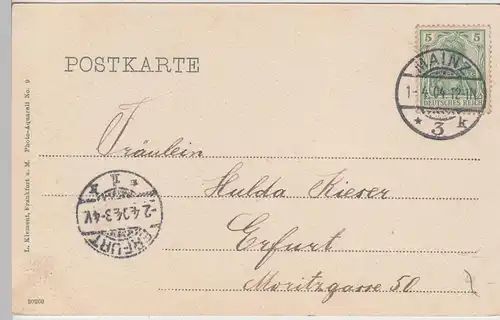 5 5
DEUTSCHES REICH
MAINZ
1-4.04.12-1N.
* 3 k
POSTKARTE
Fräulein
Hulda Kieser
Erfurt
Moritzgasse 50
* 1 k
-2.4.04.3-4V.
ERFURT
L. Klement, Frankfurt a. M. Photo-Aquarell No. 9